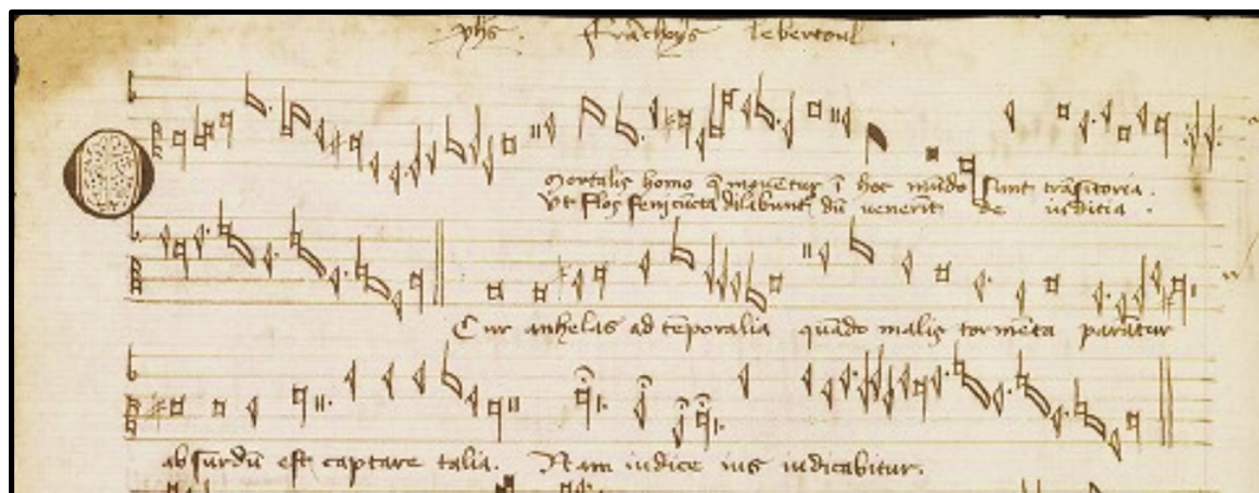 phs. frāchoys lebertoul.
O mortalis homo q̄ mouētur ī hoc mūdo sunt trāsitoria.
Vt flos feni cūcta dilabunt dū uenerit de iuditia.
Cur anhelas ad tēporalia quādo malis tormēta parātur
absurdū est captare talia. Nam iudice ius iudicabitur.